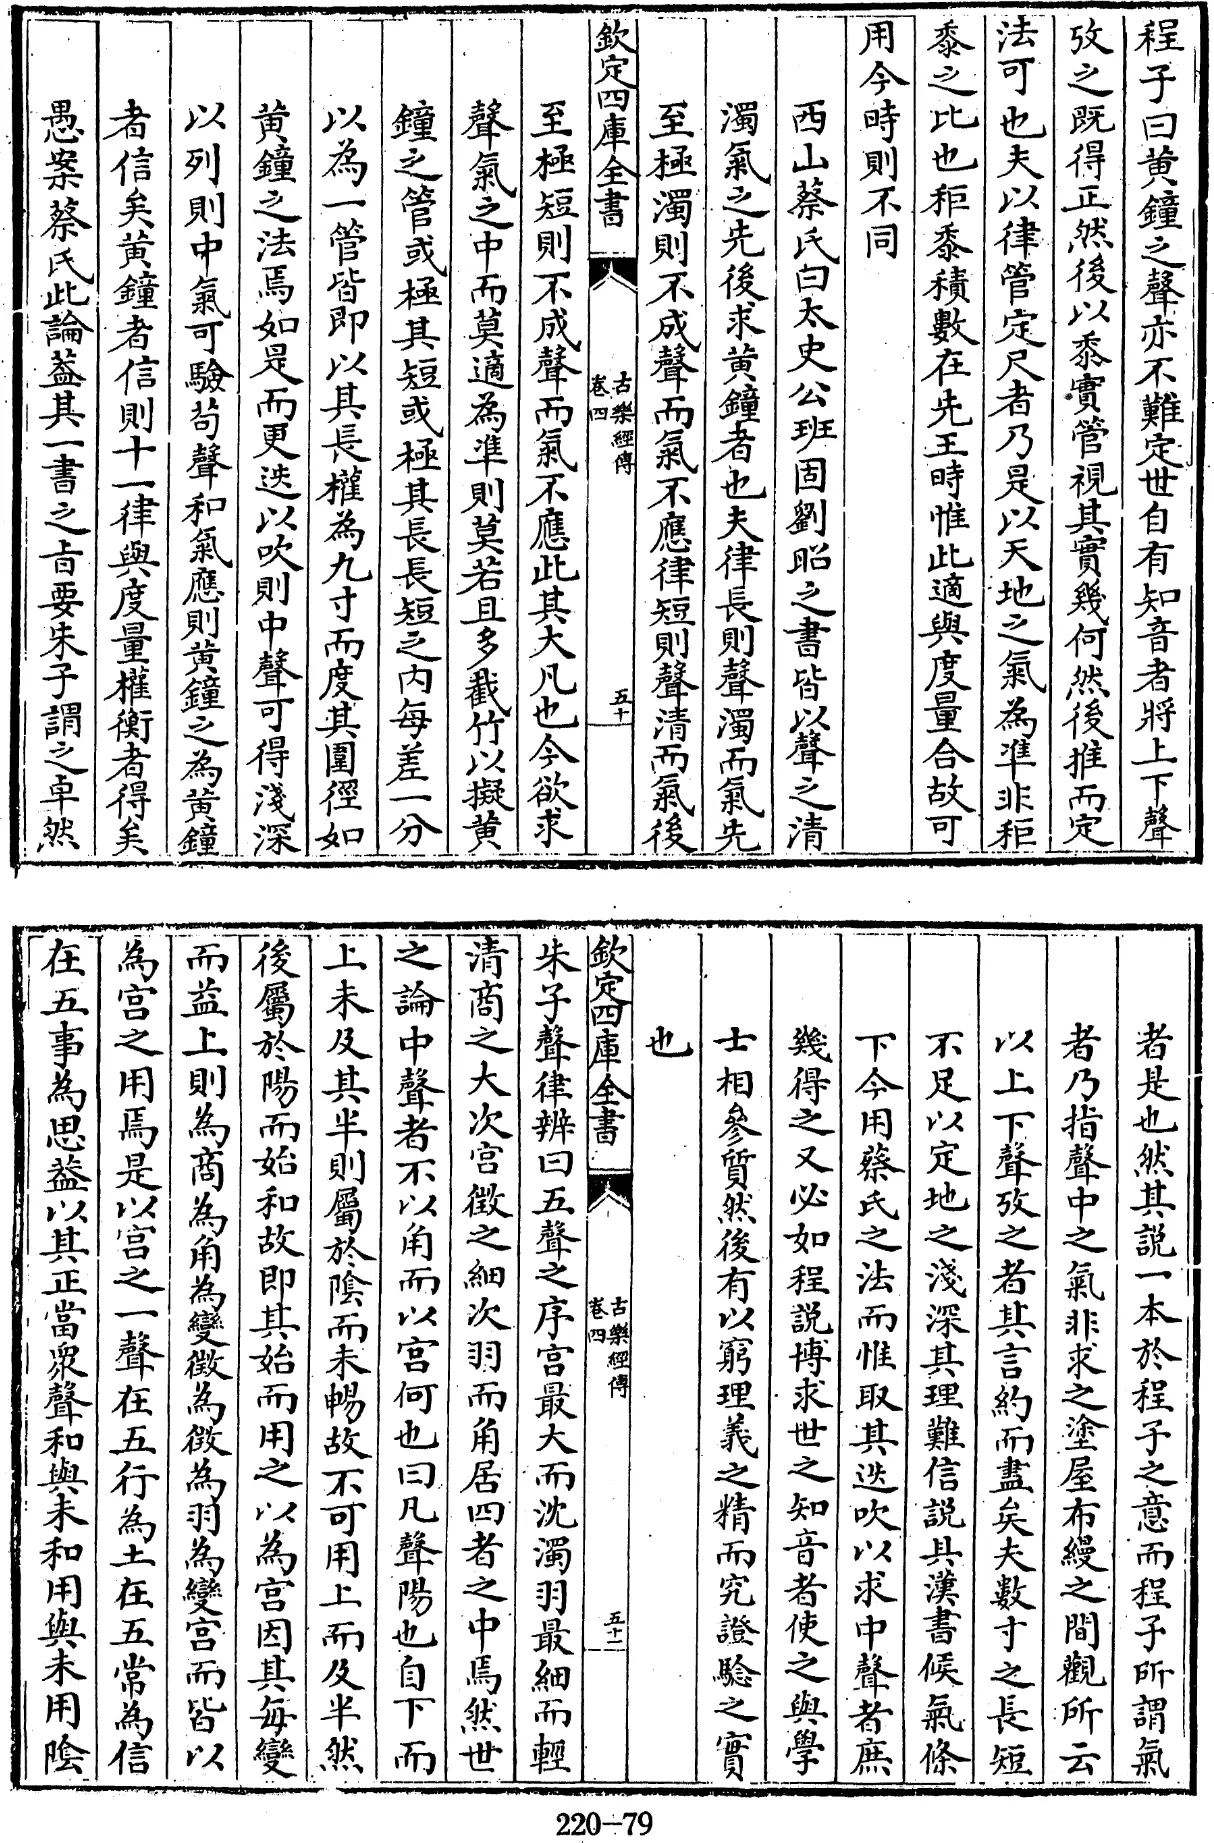 程子曰黄鐘之聲亦不難定世自有知音者將上下聲
攷之既得正然後以黍實管視其實幾何然後推而定
法可也夫以律管定尺者乃是以天地之氣為凖非秬
黍之比也秬黍積數在先王時惟此適與度量合故可
用今時則不同
西山蔡氏曰太史公班固劉昭之書皆以聲之清
濁氣之先後求黄鐘者也夫律長則聲濁而氣先
至極濁則不成聲而氣不應律短則聲清而氣後
欽定四庫全書
古樂經傳
卷四
五十
至極短則不成聲而氣不應此其大凡也今欲求
聲氣之中而莫適為凖則莫若且多截竹以擬黄
鐘之管或極其短或極其長長短之内每差一分
以為一管皆即以其長權為九寸而度其圍徑如
黄鐘之法焉如是而更迭以吹則中聲可得淺深
以列則中氣可驗苟聲和氣應則黄鐘之為黄鐘
者信矣黄鐘者信則十一律與度量權衡者得矣
愚案蔡氏此論葢其一書之旨要朱子謂之卓然
者是也然其説一本於程子之意而程子所謂氣
者乃指聲中之氣非求之塗屋布縵之間觀所云
以上下聲攷之者其言約而盡矣夫數寸之長短
不足以定地之淺深其理難信説具漢書候氣條
下今用蔡氏之法而惟取其迭吹以求中聲者庶
幾得之又必如程説博求世之知音者使之與學
士相參質然後有以窮理義之精而究證驗之實
也
欽定四庫全書
古樂經傳
卷四
五十一
朱子聲律辨曰五聲之序宫最大而沈濁羽最細而輕
清商之大次宫徵之細次羽而角居四者之中焉然世
之論中聲者不以角而以宫何也曰凡聲陽也自下而
上未及其半則屬於陰而未暢故不可用上而及半然
後屬於陽而始和故即其始而用之以為宫因其每變
而益上則為商為角為變徵為徵為羽為變宫而皆以
為宫之用焉是以宫之一聲在五行為土在五常為信
在五事為思葢以其正當衆聲和與未和用與未用陰
220—79